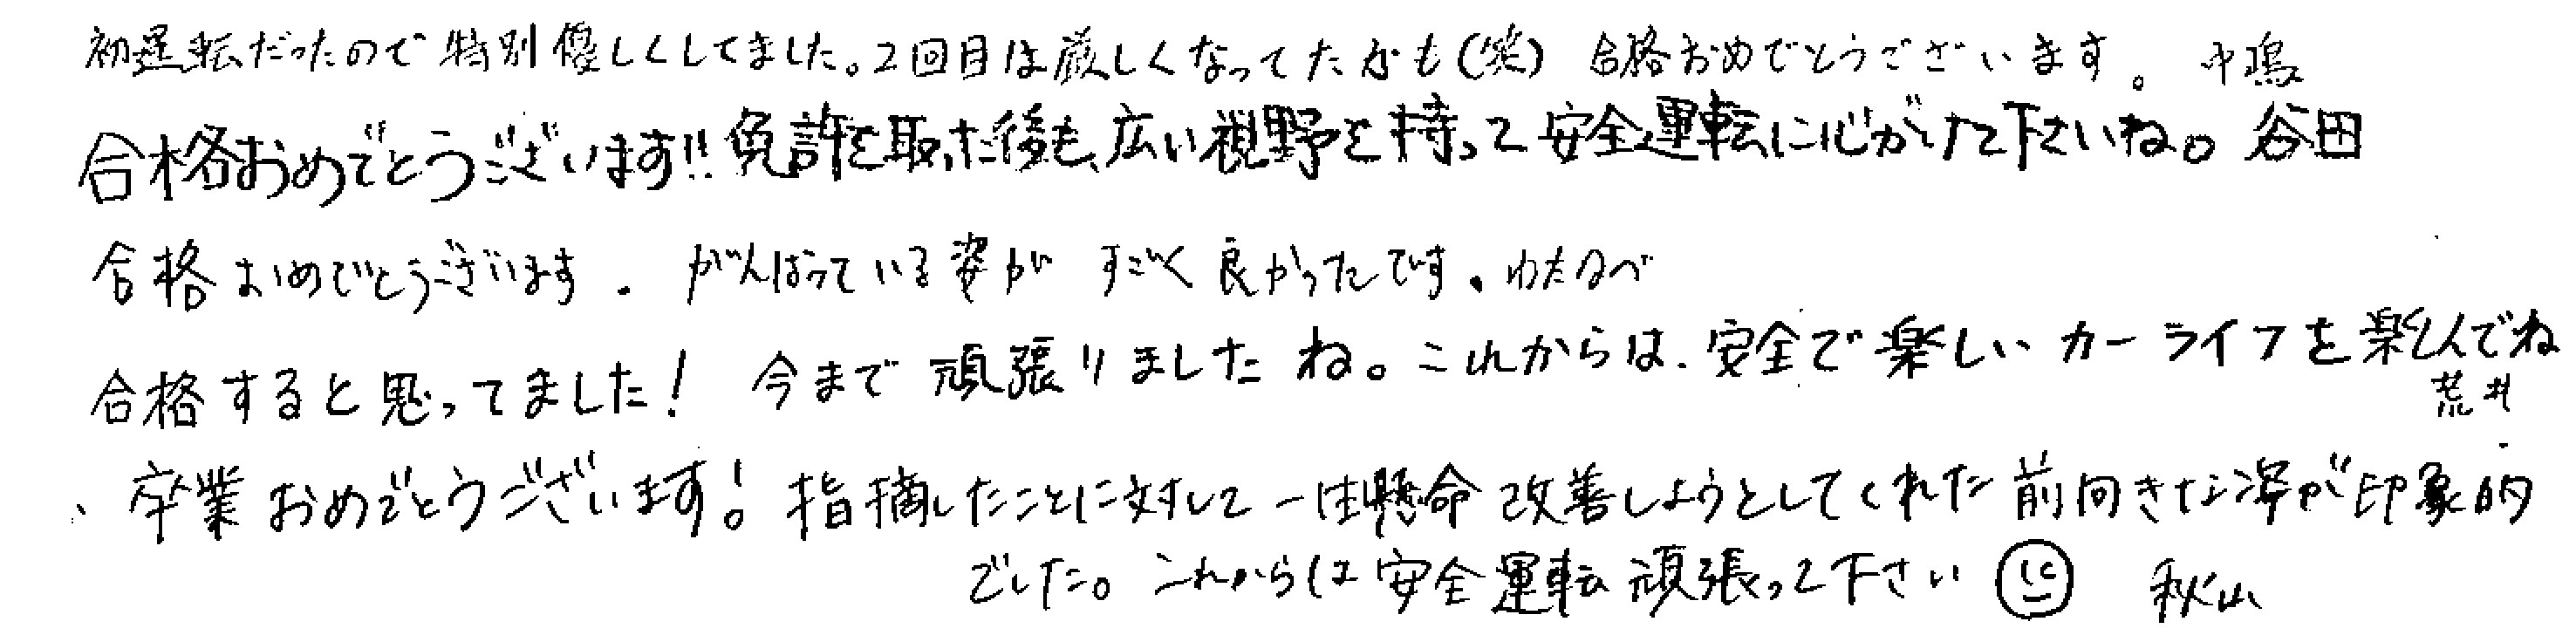 初運転だったので特別優しくしてました。2回目は厳しくなってたかも(笑) 合格おめでとうございます。 中嶋
合格おめでとうございます!! 免許を取った後も、広い視野を持って安全運転に心がけて下さいね。 谷田
合格おめでとうございます. がんばっている姿が すごく良かったです。わたなべ
合格すると思ってました! 今まで頑張りましたね。これからは、安全で楽しいカーライフを楽しんでね
荒井
卒業おめでとうございます! 指摘したことに対して一生懸命改善しようとしてくれた前向きな姿が印象的
でした。これからは安全運転頑張って下さい 秋山